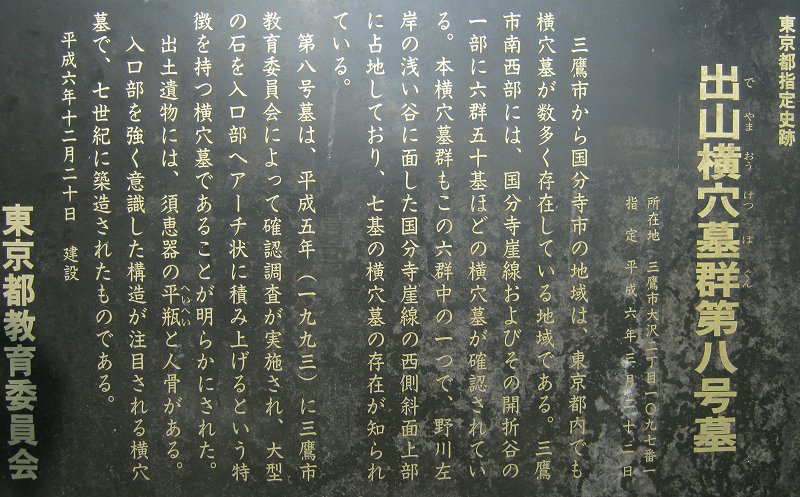 東京都指定史跡
出山横穴墓群第八号墓
で やま おう けつ ぼ ぐん
所在地 三鷹市大沢二丁目一〇九七番一
指定 平成六年三月二十二日
三鷹市から国分寺市の地域は、東京都内でも
横穴墓が数多く存在している地域である。三鷹
市南西部には、国分寺崖線およびその開折谷の
一部に六群五十基ほどの横穴墓が確認されてい
る。本横穴墓群もこの六群中の一つで、野川左
岸の浅い谷に面した国分寺崖線の西側斜面上部
に占地しており、七基の横穴墓の存在が知られ
ている。
第八号墓は、平成五年(一九九三)に三鷹市
教育委員会によって確認調査が実施され、大型
の石を入口部へアーチ状に積み上げるという特
徴を持つ横穴墓であることが明らかにされた。
出土遺物には、須恵器の平瓶と人骨がある。
へいへい
入口部を強く意識した構造が注目される横穴
墓で、七世紀に築造されたものである。
平成六年十二月二十日 建設
東京都教育委員会